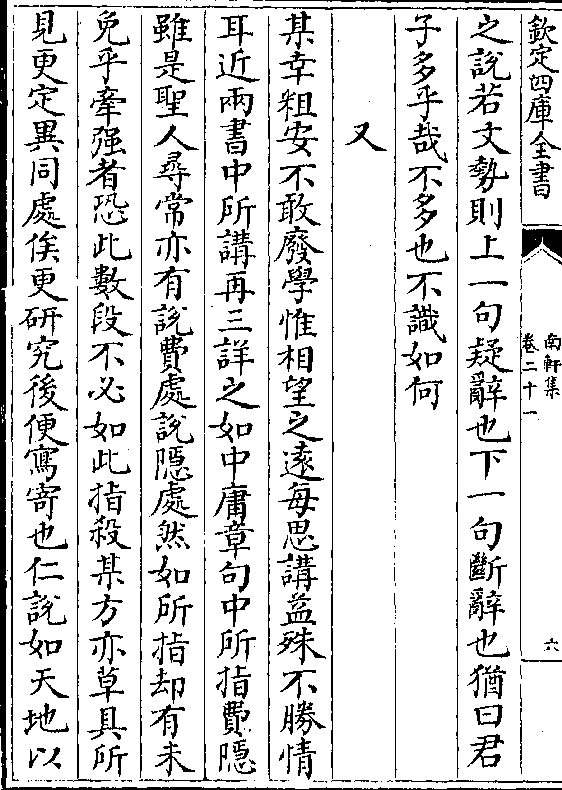 欽定四庫全書
南軒集
卷二十一
六
之說若文勢則上一句疑辭也下一句斷辭也猶曰君
子多乎哉不多也不識如何
又
某幸粗安不敢廢學惟相望之遠每思講益殊不勝情
耳近兩書中所講再三詳之如中庸章句中所指費隱
雖是聖人尋常亦有說費處說隱處然如所指却有未
免乎牽强者恐此數段不必如此指殺某方亦草具所
見更定異同處俟更研究後便寫寄也仁說如天地以